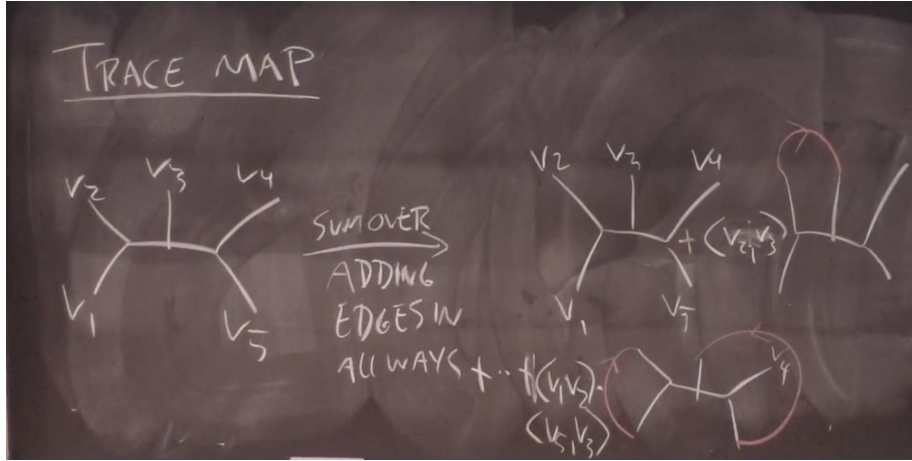 TRACE MAP
V2 V3 V4
V1 V5
SUM OVER
ADDING
EDGES IN
ALL WAYS
V2 V3 V4
+ (V2, V3)
V1 V5
+ ... + (V1, V2) ·
(V5, V3)
V4